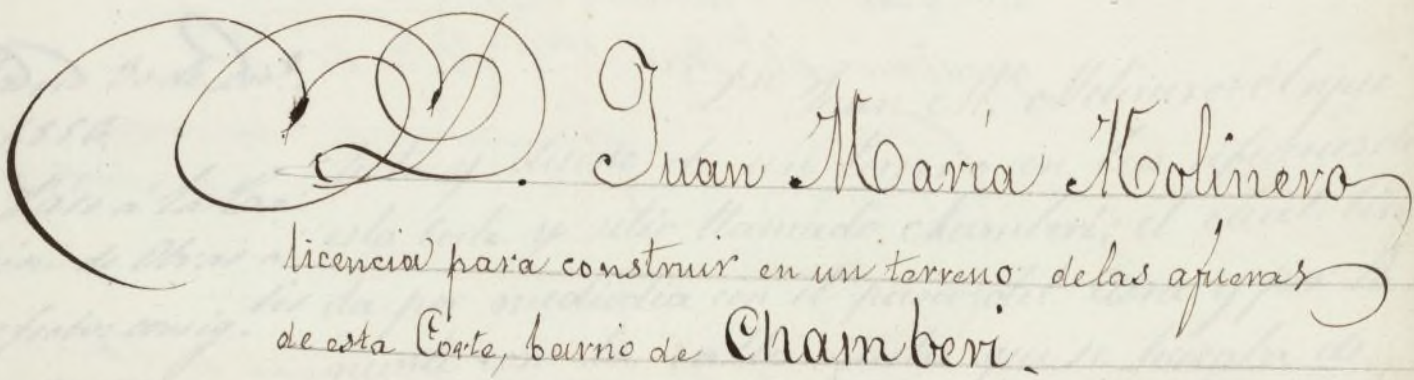 D. Juan María Molinero
licencia para construir en un terreno de las afueras
de esta Corte, barrio de Chamberi.